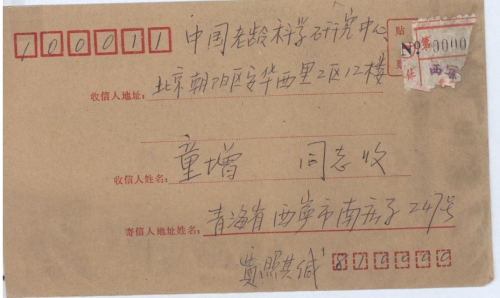 100011 中国老龄科学研究中心
贴
Nº 第 0000
西宁
收信人地址: 北京朝阳区安华西里2区12楼
收信人姓名: 童增 同志收
寄信人地址姓名: 青海省西宁市南 247号
黄 缄 810000